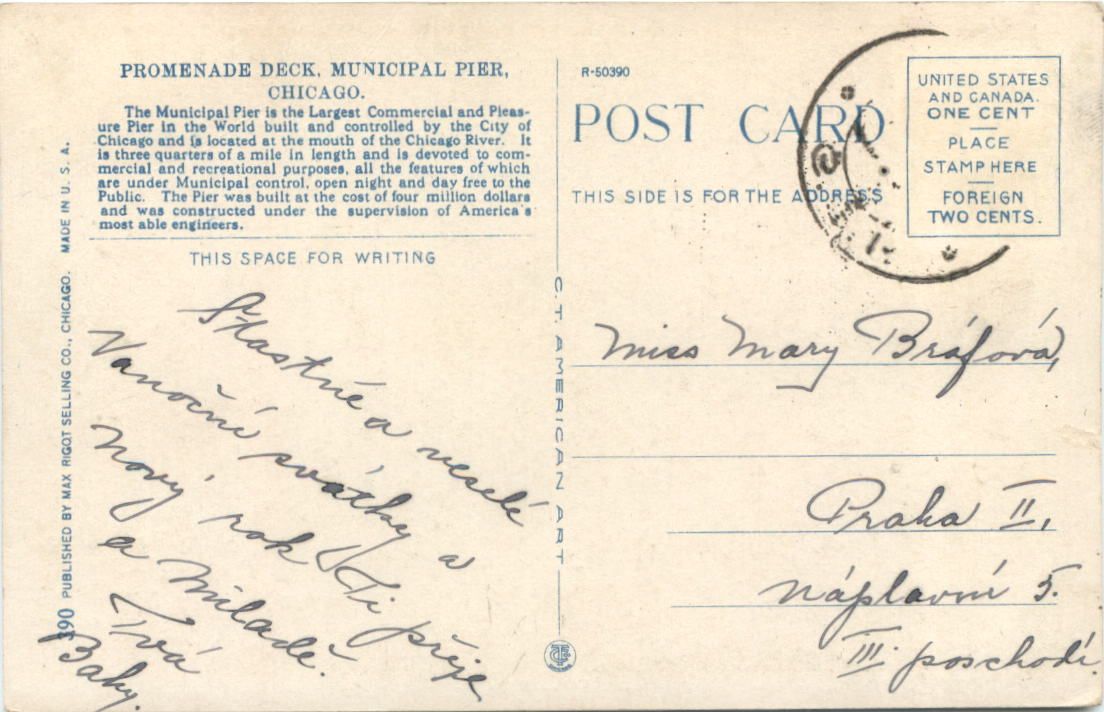 PROMENADE DECK, MUNICIPAL PIER,
CHICAGO.
The Municipal Pier is the Largest Commercial and Pleas-
ure Pier in the World built and controlled by the City of
Chicago and is located at the mouth of the Chicago River. It
is three quarters of a mile in length and is devoted to com-
mercial and recreational purposes, all the features of which
are under Municipal control, open night and day free to the
Public. The Pier was built at the cost of four million dollars
and was constructed under the supervision of America's
most able engineers.
THIS SPACE FOR WRITING
Šťastné a veselé
Vánoční svátky a
nový rok Ti přeje
a Miladě.
Tvá
Baby.
390 PUBLISHED BY MAX RIGOT SELLING CO., CHICAGO. MADE IN U. S. A.
C. T. AMERICAN ART
R-50390
POST CARD
THIS SIDE IS FOR THE ADDRESS
UNITED STATES
AND CANADA.
ONE CENT
PLACE
STAMP HERE
FOREIGN
TWO CENTS.
Miss Mary Bráfová,
Praha II,
Náplavní 5.
III. poschodí.